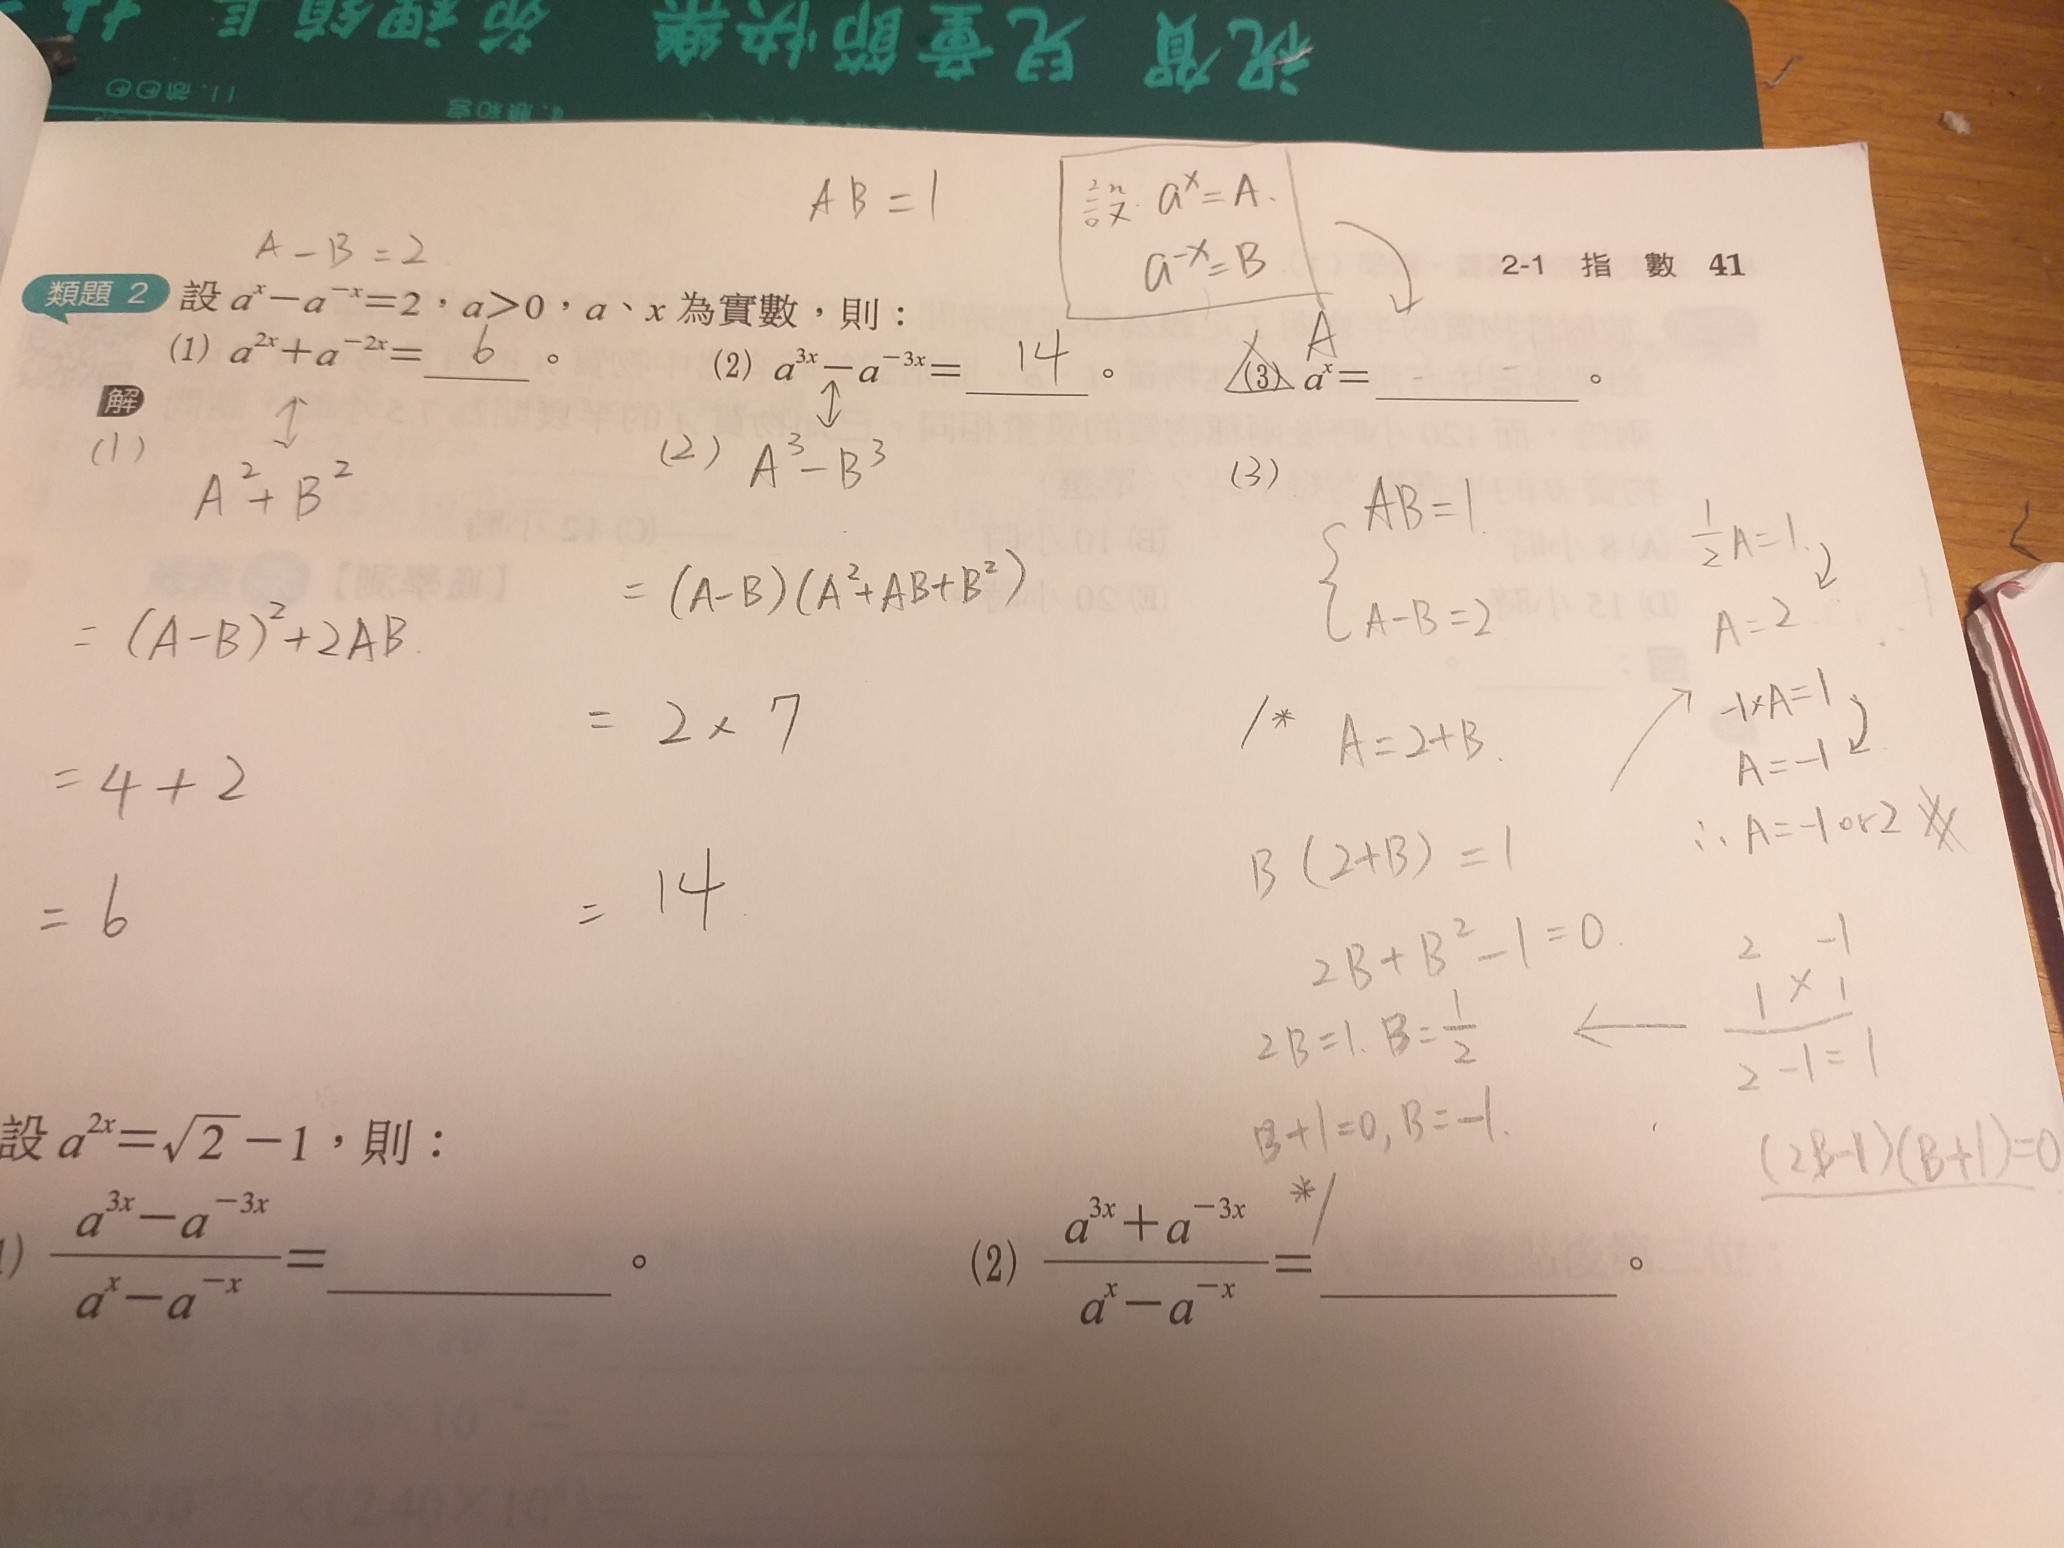 祝賀 兒童節快樂
AB=1
設 a^x=A.
a^-x=B
A-B=2
2-1 指 數 41
類題 2 設 a^x-a^-x=2,a>0,a、x 為實數,則:
(1) a^2x+a^-2x= 6 。 (2) a^3x-a^-3x= 14 。 (3) a^x= 。
A
解
(1) ↕
A²+B²
=(A-B)²+2AB.
=4+2
=6
(2) A³-B³
=(A-B)(A²+AB+B²)
=2×7
=14
(3)
AB=1.
A-B=2
/* A=2+B.
B(2+B)=1
2B+B²-1=0.
2B=1. B=1/2
B+1=0, B=-1.
*/
1/2 A=1.
A=2
-1×A=1
A=-1
∴A=-1or2
2 -1
1 × 1
2-1=1
(2B-1)(B+1)=0
設 a^2x=√2-1,則:
) (a^3x-a^-3x)/(a^x-a^-x)= 。
(2) (a^3x+a^-3x)/(a^x-a^-x)= 。